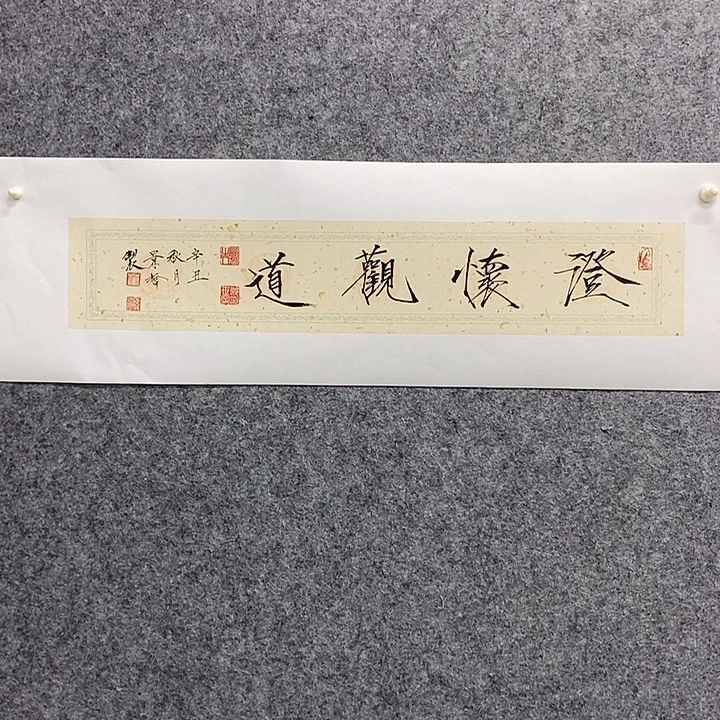 澄懷觀道
辛丑
秋月
景
製